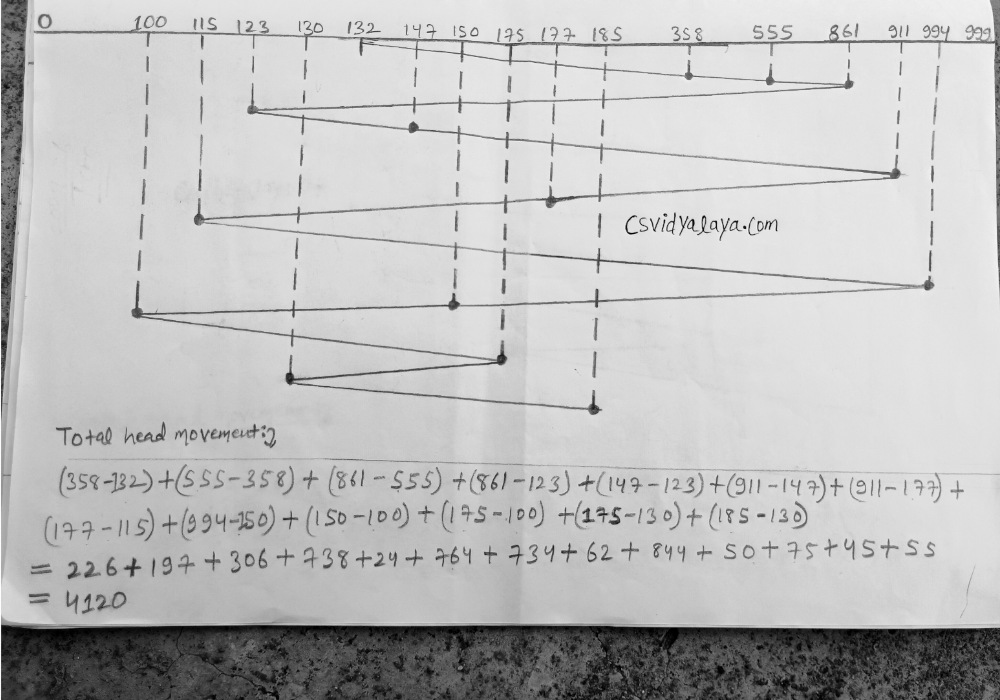 0 100 115 123 130 132 147 150 175 177 185 358 555 861 911 994 999
Csvidyalaya.com
Total head movement:
(358-132) + (555-358) + (861-555) + (861-123) + (147-123) + (911-147) + (911-177) +
(177-115) + (994-150) + (150-100) + (175-100) + (175-130) + (185-130)
= 226 + 197 + 306 + 738 + 24 + 764 + 734 + 62 + 844 + 50 + 75 + 45 + 55
= 4120